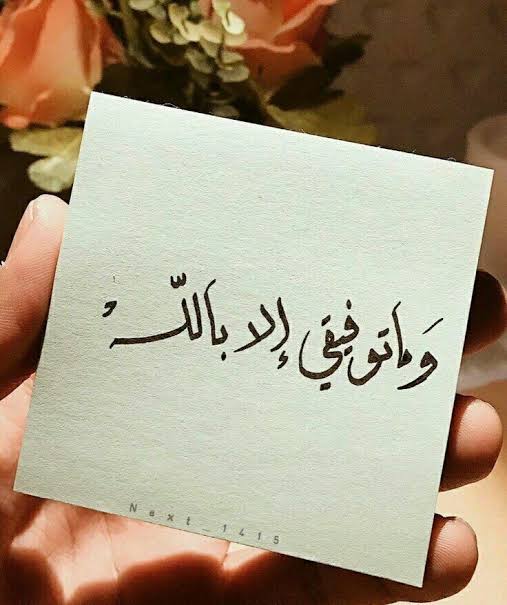 وَماتوفيقي إلا باللّه
Next_1415